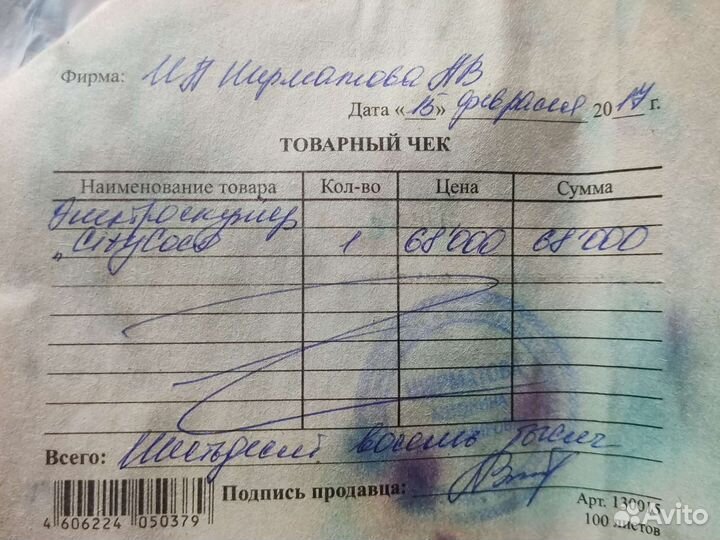 Фирма: ИП Нирматова АВ
Дата «15» февраля 2017 г.
ТОВАРНЫЙ ЧЕК
Наименование товара Кол-во Цена Сумма
Электроскутер
"CityCoco 1 68'000 68'000
НИРМАТОВА
Всего: Шестьдесят восемь тысяч
Подпись продавца:
4 606224 050379
Арт. 130015
100 листов
Avito